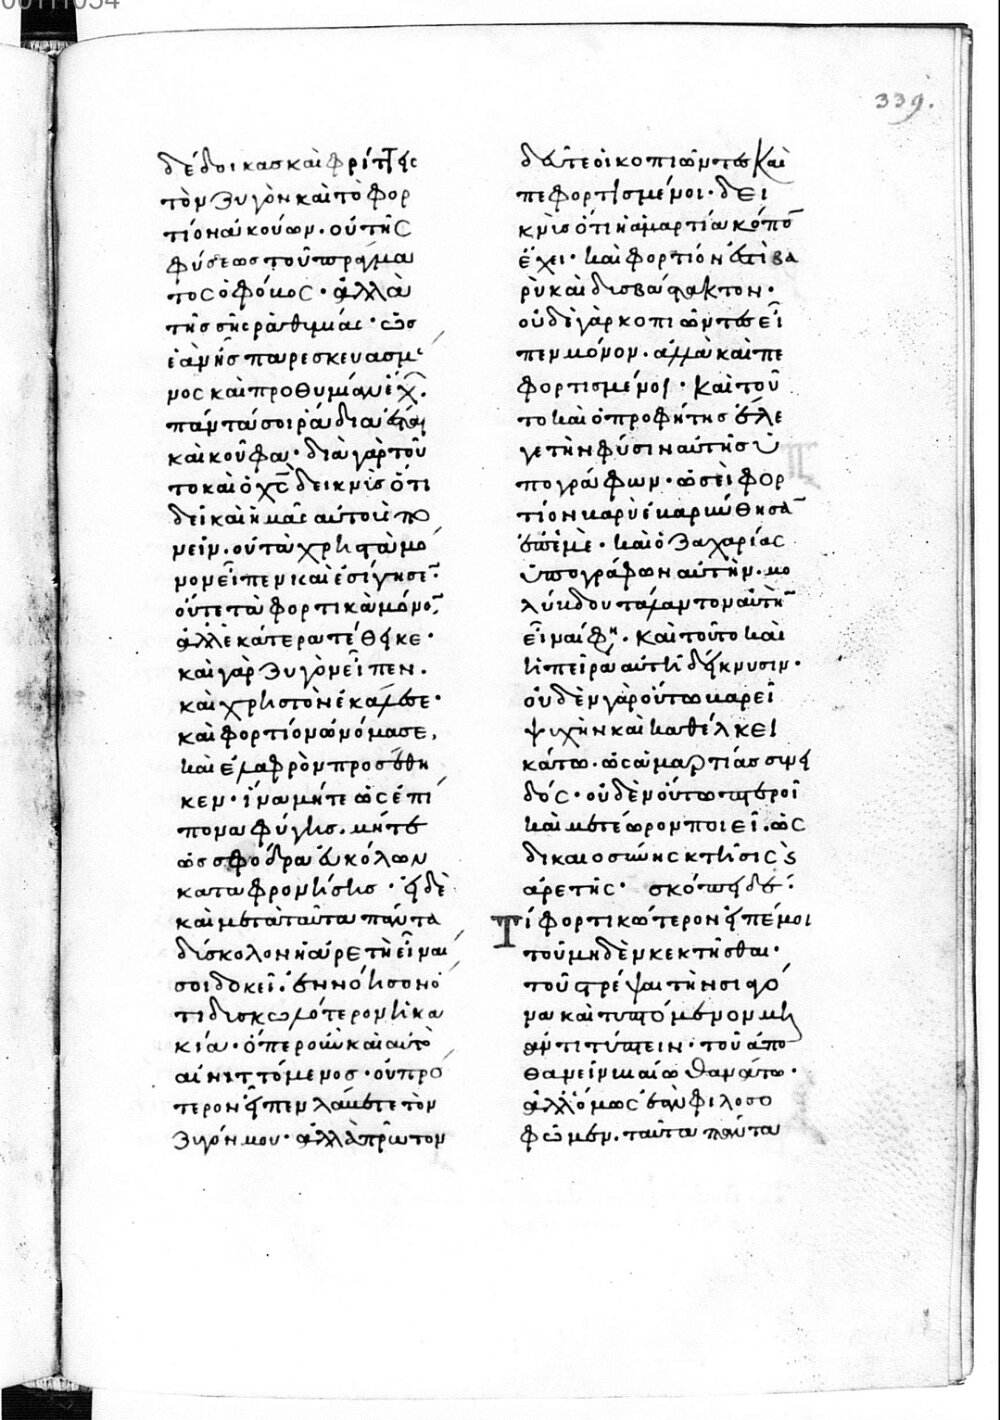 339.
δέδοικας καὶ φρίττεις
τὸν ζυγὸν καὶ τὸ φορ
τίον ἀκούων. οὐ τῆς
φύσεως τοῦ πράγμα
τος ὁ φόβος. ἀλλὰ
τῆς σῆς ῥαθυμίας. ὡς
ἐὰν ᾖς παρεσκευασμέ
νος καὶ προθυμίαν ἔχῃς.
πάντα σοι ῥάδια ἔσται
καὶ κοῦφα. διὰ γὰρ τοῦ
το καὶ ὁ χς δεικνὺς ὅτι
δεῖ καὶ ἡμᾶς αὐτοὺς πο
νεῖν. οὐ τὰ χρηστὰ μό
νον εἶπεν καὶ ἐσίγησεν.
οὔτε τὰ φορτικὰ μόνον,
ἀλλ' ἑκάτερα τέθεικε.
καὶ γὰρ ζυγὸν εἶπεν.
καὶ χρηστὸν ἐκάλεσε.
καὶ φορτίον ὠνόμασε,
καὶ ἐλαφρὸν προσέθη
κεν. ἵνα μήτε ὡς ἐπί
πονα φύγῃς. μήτε
ὡς σφόδρα εὐκόλων
καταφρονήσῃς. εἰ δὲ
καὶ μετὰ ταῦτα πάντα
δύσκολον ἡ ἀρετὴ εἶναι
σοι δοκεῖ. ἐννόησον ὅ
τι δυσκολότερον ἡ κα
κία. ὅπερ οὖν καὶ αὐτὸ
αἰνιττόμενος. οὐ πρό
τερον εἶπεν λάβετε τὸν
ζυγόν μου. ἀλλὰ πρῶτον
δεῦτε οἱ κοπιῶντες καὶ
πεφορτισμένοι. δει
κνὺς ὅτι ἡ ἁμαρτία κόπον
ἔχει. καὶ φορτίον ἐστὶ βα
ρὺ καὶ δυσβάστακτον.
οὐδὲ γὰρ κοπιῶντες εἶ
πεν μόνον. ἀλλὰ καὶ πε
φορτισμένοι. καὶ τοῦ
το καὶ ὁ προφήτης ἔλε
γε τὴν φύσιν αὐτῆς ὑ
πογράφων. ὡσεὶ φορ
τίον βαρὺ ἐβαρύνθησαν
ἐπ' ἐμέ. καὶ ὁ Ζαχαρίας
ὑπογράφων αὐτὴν. μο
λύβδου τάλαντον αὐτὴν
εἶναί φη. καὶ τοῦτο καὶ
ἡ πεῖρα αὐτὴ δείκνυσιν.
οὐδὲν γὰρ οὕτω βαρεῖ
ψυχὴν καὶ καθέλκει
κάτω. ὡς ἁμαρτίας συνει
δός. οὐδὲν οὕτω πτεροῖ
καὶ μετέωρον ποιεῖ. ὡς
δικαιοσύνης κτῆσις καὶ
ἀρετῆς. σκόπει δέ.
Τί φορτικώτερον εἰπέ μοι
τοῦ μηδὲν κεκτῆσθαι.
τοῦ στρέψαι τὴν σιαγό
να καὶ τυπτόμενον μὴ
ἀντιτύπτειν. τοῦ ἀπο
θανεῖν βιαίω θανάτω.
ἀλλ' ὅμως ἐὰν φιλοσο
φῶμεν. ταῦτα πάντα